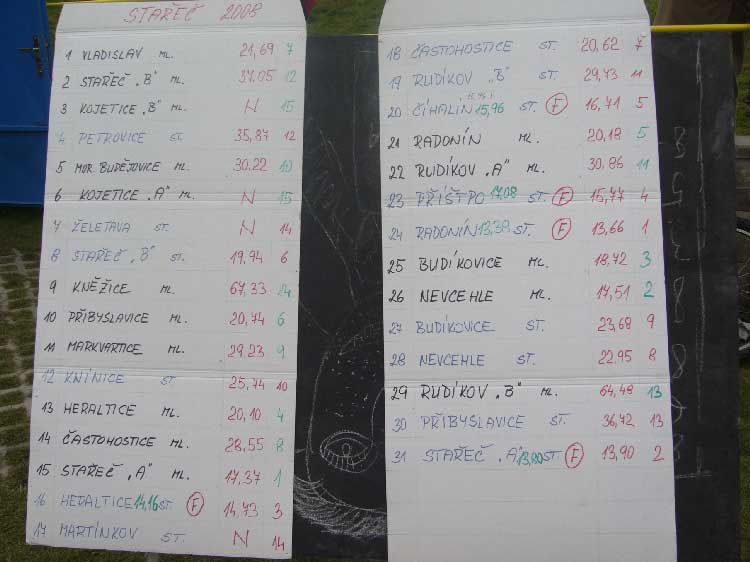 STAŘEČ 2008
1 VLADISLAV ML. 21,69 7
2 STAŘEČ „B" ML. 37,05 12
3 KOJETICE „B" ML. N 15
4 PETROVICE ST. 35,87 12
5 MOR. BUDĚJOVICE ML. 30,22 10
6 KOJETICE „A" ML. N 15
7 ŽELETAVA ST. N 14
8 STAŘEČ „B" ST. 19,94 6
9 KNĚŽICE ML. 67,33 14
10 PŘIBYSLAVICE ML. 20,74 6
11 MARKVARTICE ML. 29,23 9
12 KNÍNICE ST. 25,74 10
13 HERALTICE ML. 20,10 4
14 ČASTOHOSTICE ML. 28,55 8
15 STAŘEČ „A" ML. 17,37 1
16 HERALTICE 14,16 ST. F 14,73 3
17 MARTÍNKOV ST. N 14
18 ČASTOHOSTICE ST. 20,62 7
19 RUDÍKOV „B" ST. 29,73 11
20 ČÍHALÍN 15,96 ST. F 16,71 5
21 RADONÍN ML. 20,18 5
22 RUDÍKOV „A" ML. 30,86 11
23 PŘÍŠTPO 17,08 ST. F 15,77 4
24 RADONÍN 13,38 ST. F 13,66 1
25 BUDÍKOVICE ML. 18,72 3
26 NEVCEHLE ML. 17,51 2
27 BUDÍKOVICE ST. 23,68 9
28 NEVCEHLE ST. 22,95 8
29 RUDÍKOV „B" ML. 64,48 13
30 PŘIBYSLAVICE ST. 36,42 13
31 STAŘEČ „A" 13,80 ST. F 13,90 2